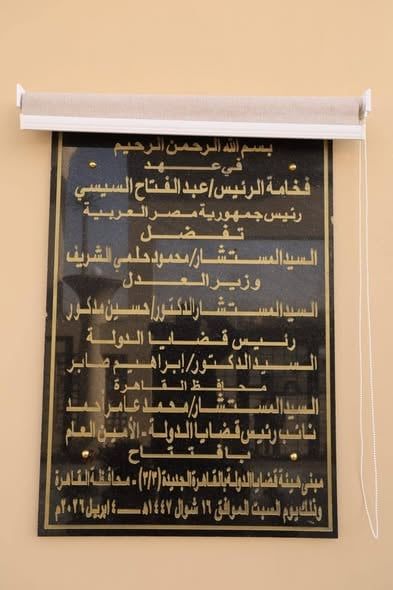 بسم الله الرحمن الرحيم
في عهد
فخامة الرئيس/عبد الفتاح السيسي
رئيس جمهورية مصر العربية
تفضل
السيد المستشار/محمود حلمي الشريف
وزير العدل
السيد المستشار الدكتور/حسين مدكور
رئيس قضايا الدولة
السيد الدكتور/إبراهيم صابر
محافظ القاهرة
السيد المستشار/محمد عامر احمد
نائب رئيس قضايا الدولة - الأمين العام
بافتتاح
مبنى هيئة قضايا الدولة بالقاهرة الجديدة (٣/٢) - محافظة القاهرة
وذلك يوم السبت الموافق ١٦ شوال ١٤٤٧هـ - ٤ إبريل ٢٠٢٦م